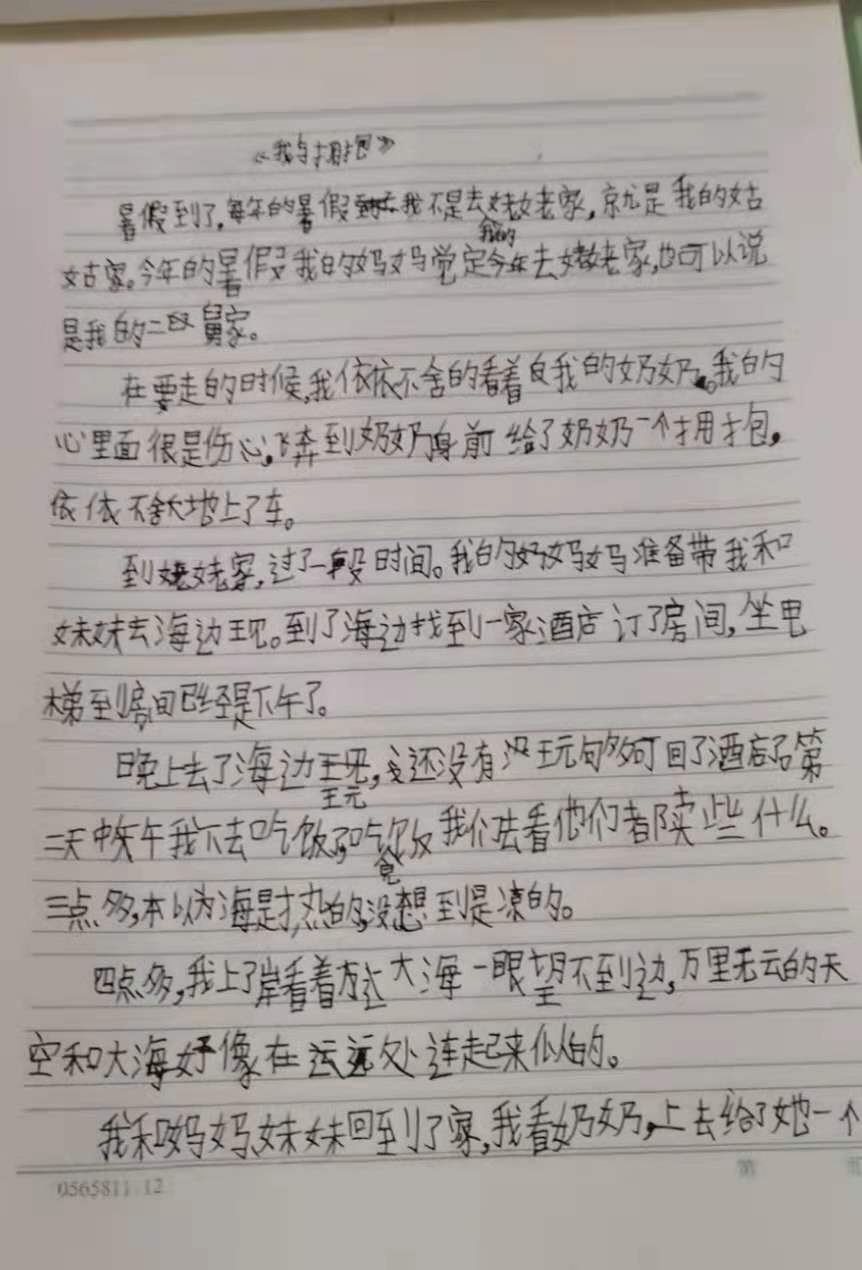 《我与拥抱》
暑假到了，每年的暑假我不是去姥姥老家，就是我的姑
姑家。今年的暑假我的妈妈觉定我的今年去姥姥老家，也可以说
是我的二舅家。
在要走的时候，我依依不舍的看着我的奶奶。我的
心里面很是伤心，飞奔到奶奶身前给了奶奶一个拥抱，
依依不舍地上了车。
到姥姥家，过了一段时间。我的妈妈准备带我和
妹妹去海边玩。到了海边找到一家酒店订了房间，坐电
梯到房间已经是下午了。
晚上去了海边玩，还没有玩够可回了酒店第
玩
二天中午我下去吃饭，吃饭我们去看他们都卖些什么。
三点多，本以为海是热的，没想到是凉的。
四点多，我上了岸看着大海一眼望不到边，万里无云的天
空和大海好像在远处连起来似的。
我和妈妈、妹妹回到了家，我看奶奶，上去给了她一个
0565811.12
第